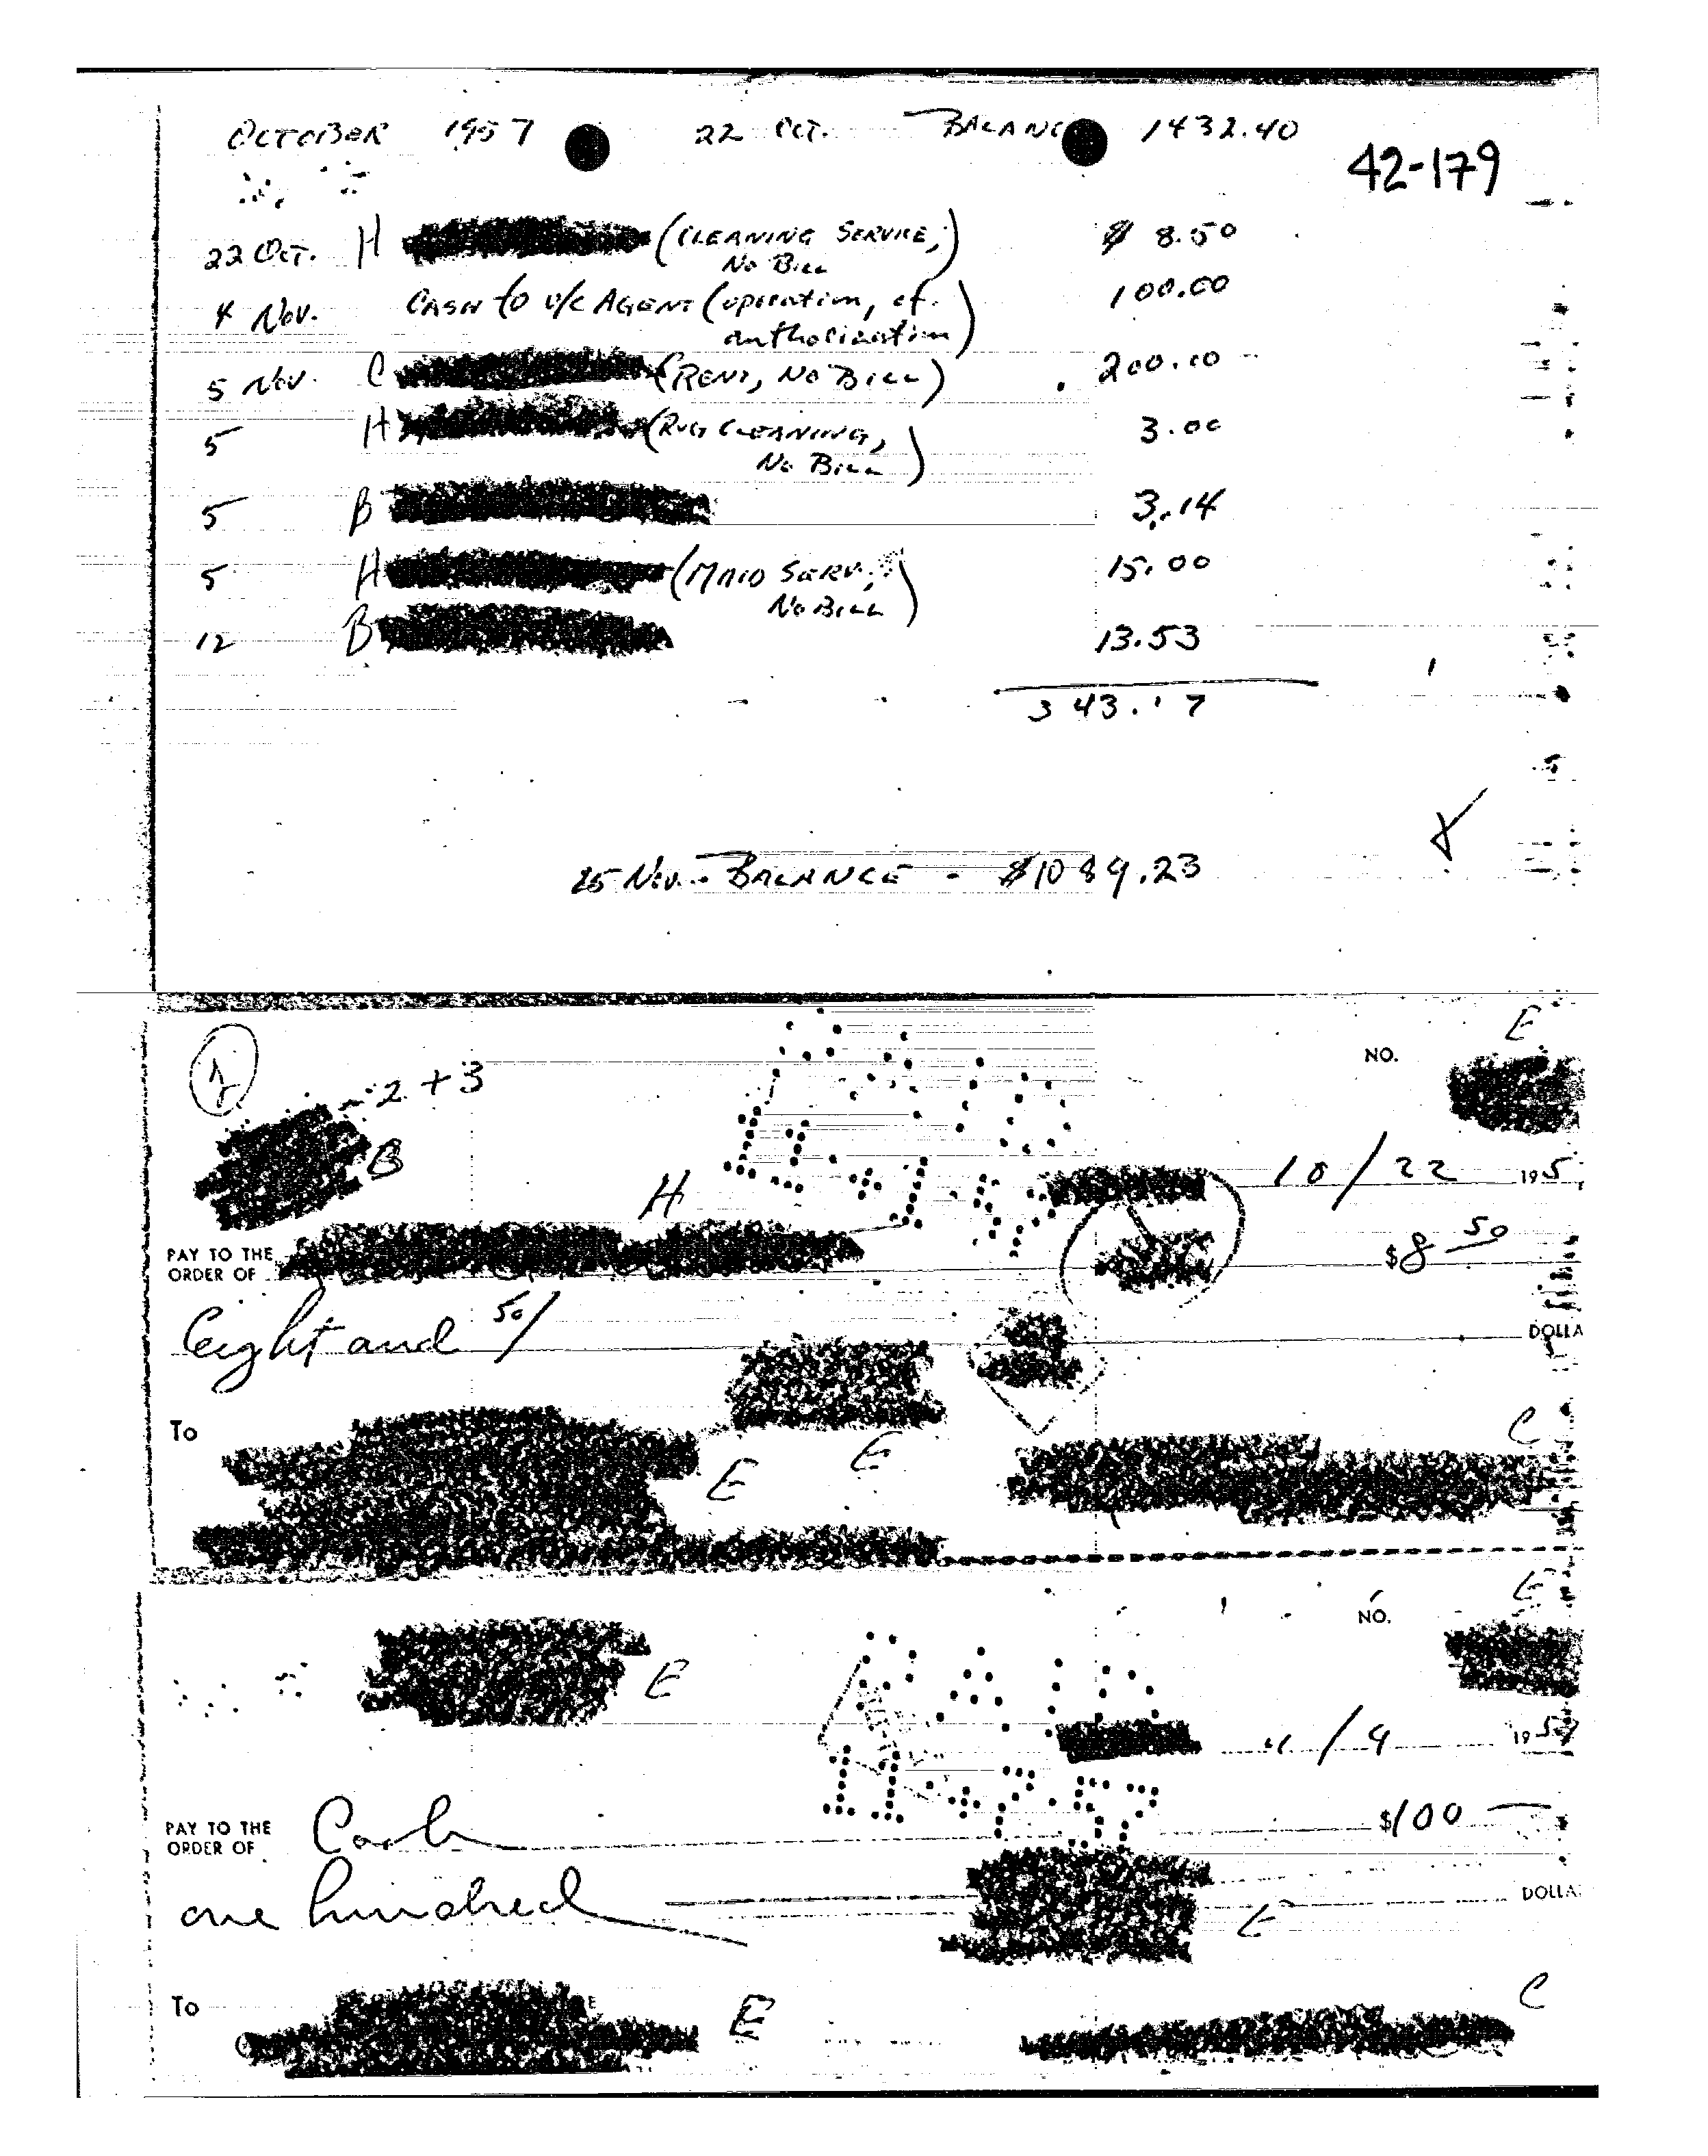 OCTOBER 1957 22 OCT. BALANC 1432.40
42-179
22 OCT. H (CLEANING SERVICE, $ 8.50
NO BILL)
4 NOV. CASH TO U/C AGENT (operation, cf. 100.00
authorization)
5 NOV. C (RENT, NO BILL) 200.00
5 H (RUG CLEANING, 3.00
NO BILL)
5 B 3.14
5 H (MAID SERV., 15.00
NO BILL)
12 B 13.53
343.17
25 NOV. BALANCE - $1089.23
E
NO.
2 + 3
B
10/22 195
H
PAY TO THE
ORDER OF $8 50
Eight and 50/
DOLLA
To
C
E E
E
NO.
E
11/4 1957
PAY TO THE
ORDER OF Cash $100
one hundred DOLLA
E
To E C